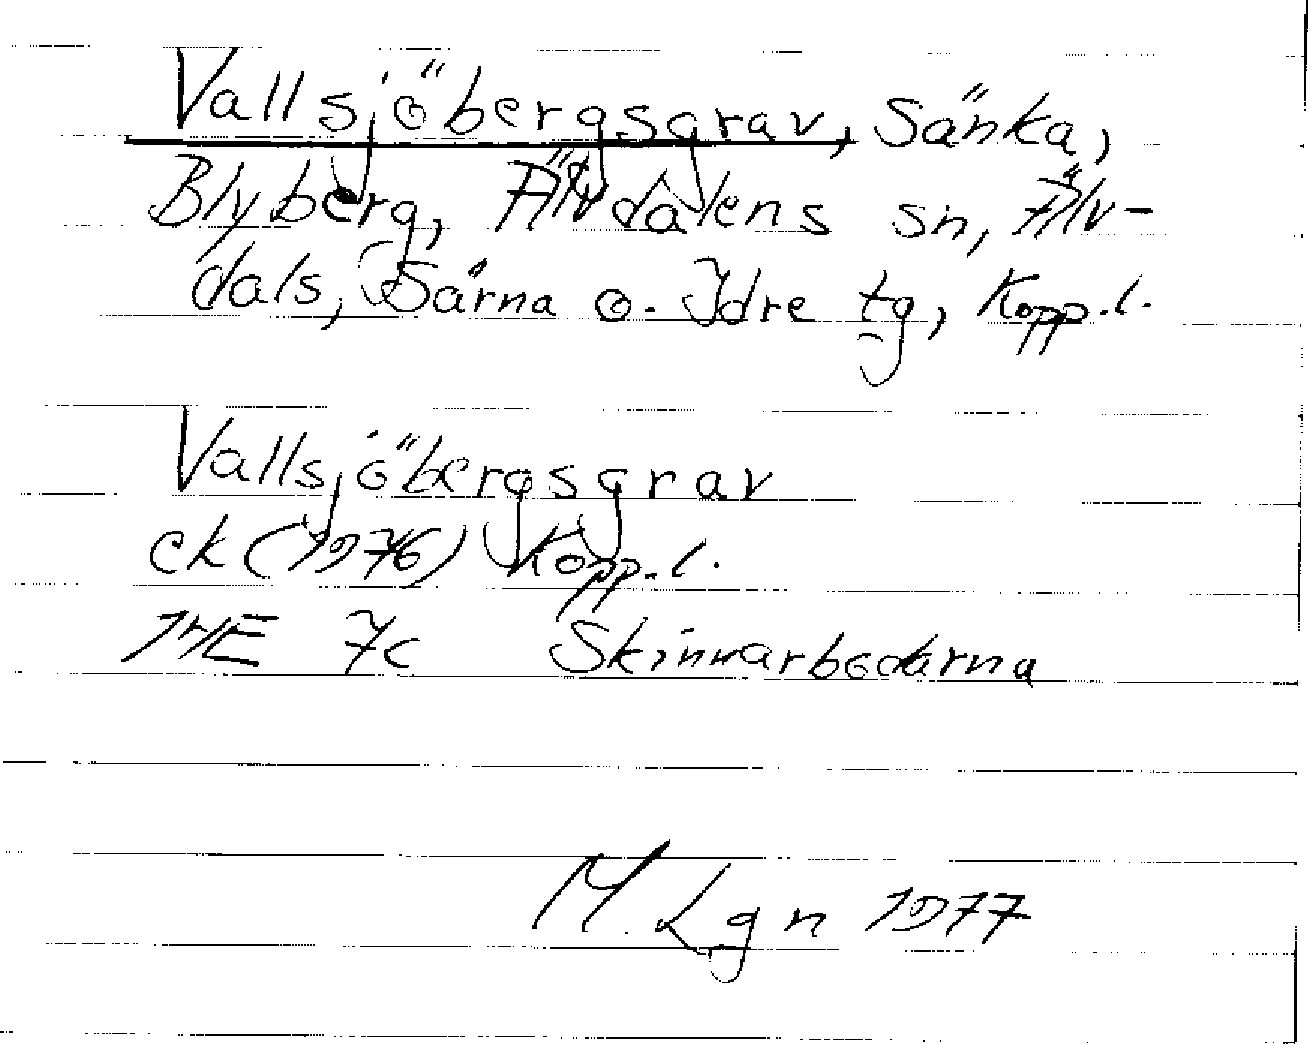 Vallsjöbergsgrav, Sänka,
Blyberg, Älvdalens sn, Älv-
dals, Särna o. Idre tg, Kopp.l.
Vallsjöbergsgrav
ek (1976) Kopp.l.
14E 7c Skinnarbodarna
M. Lgn 1977